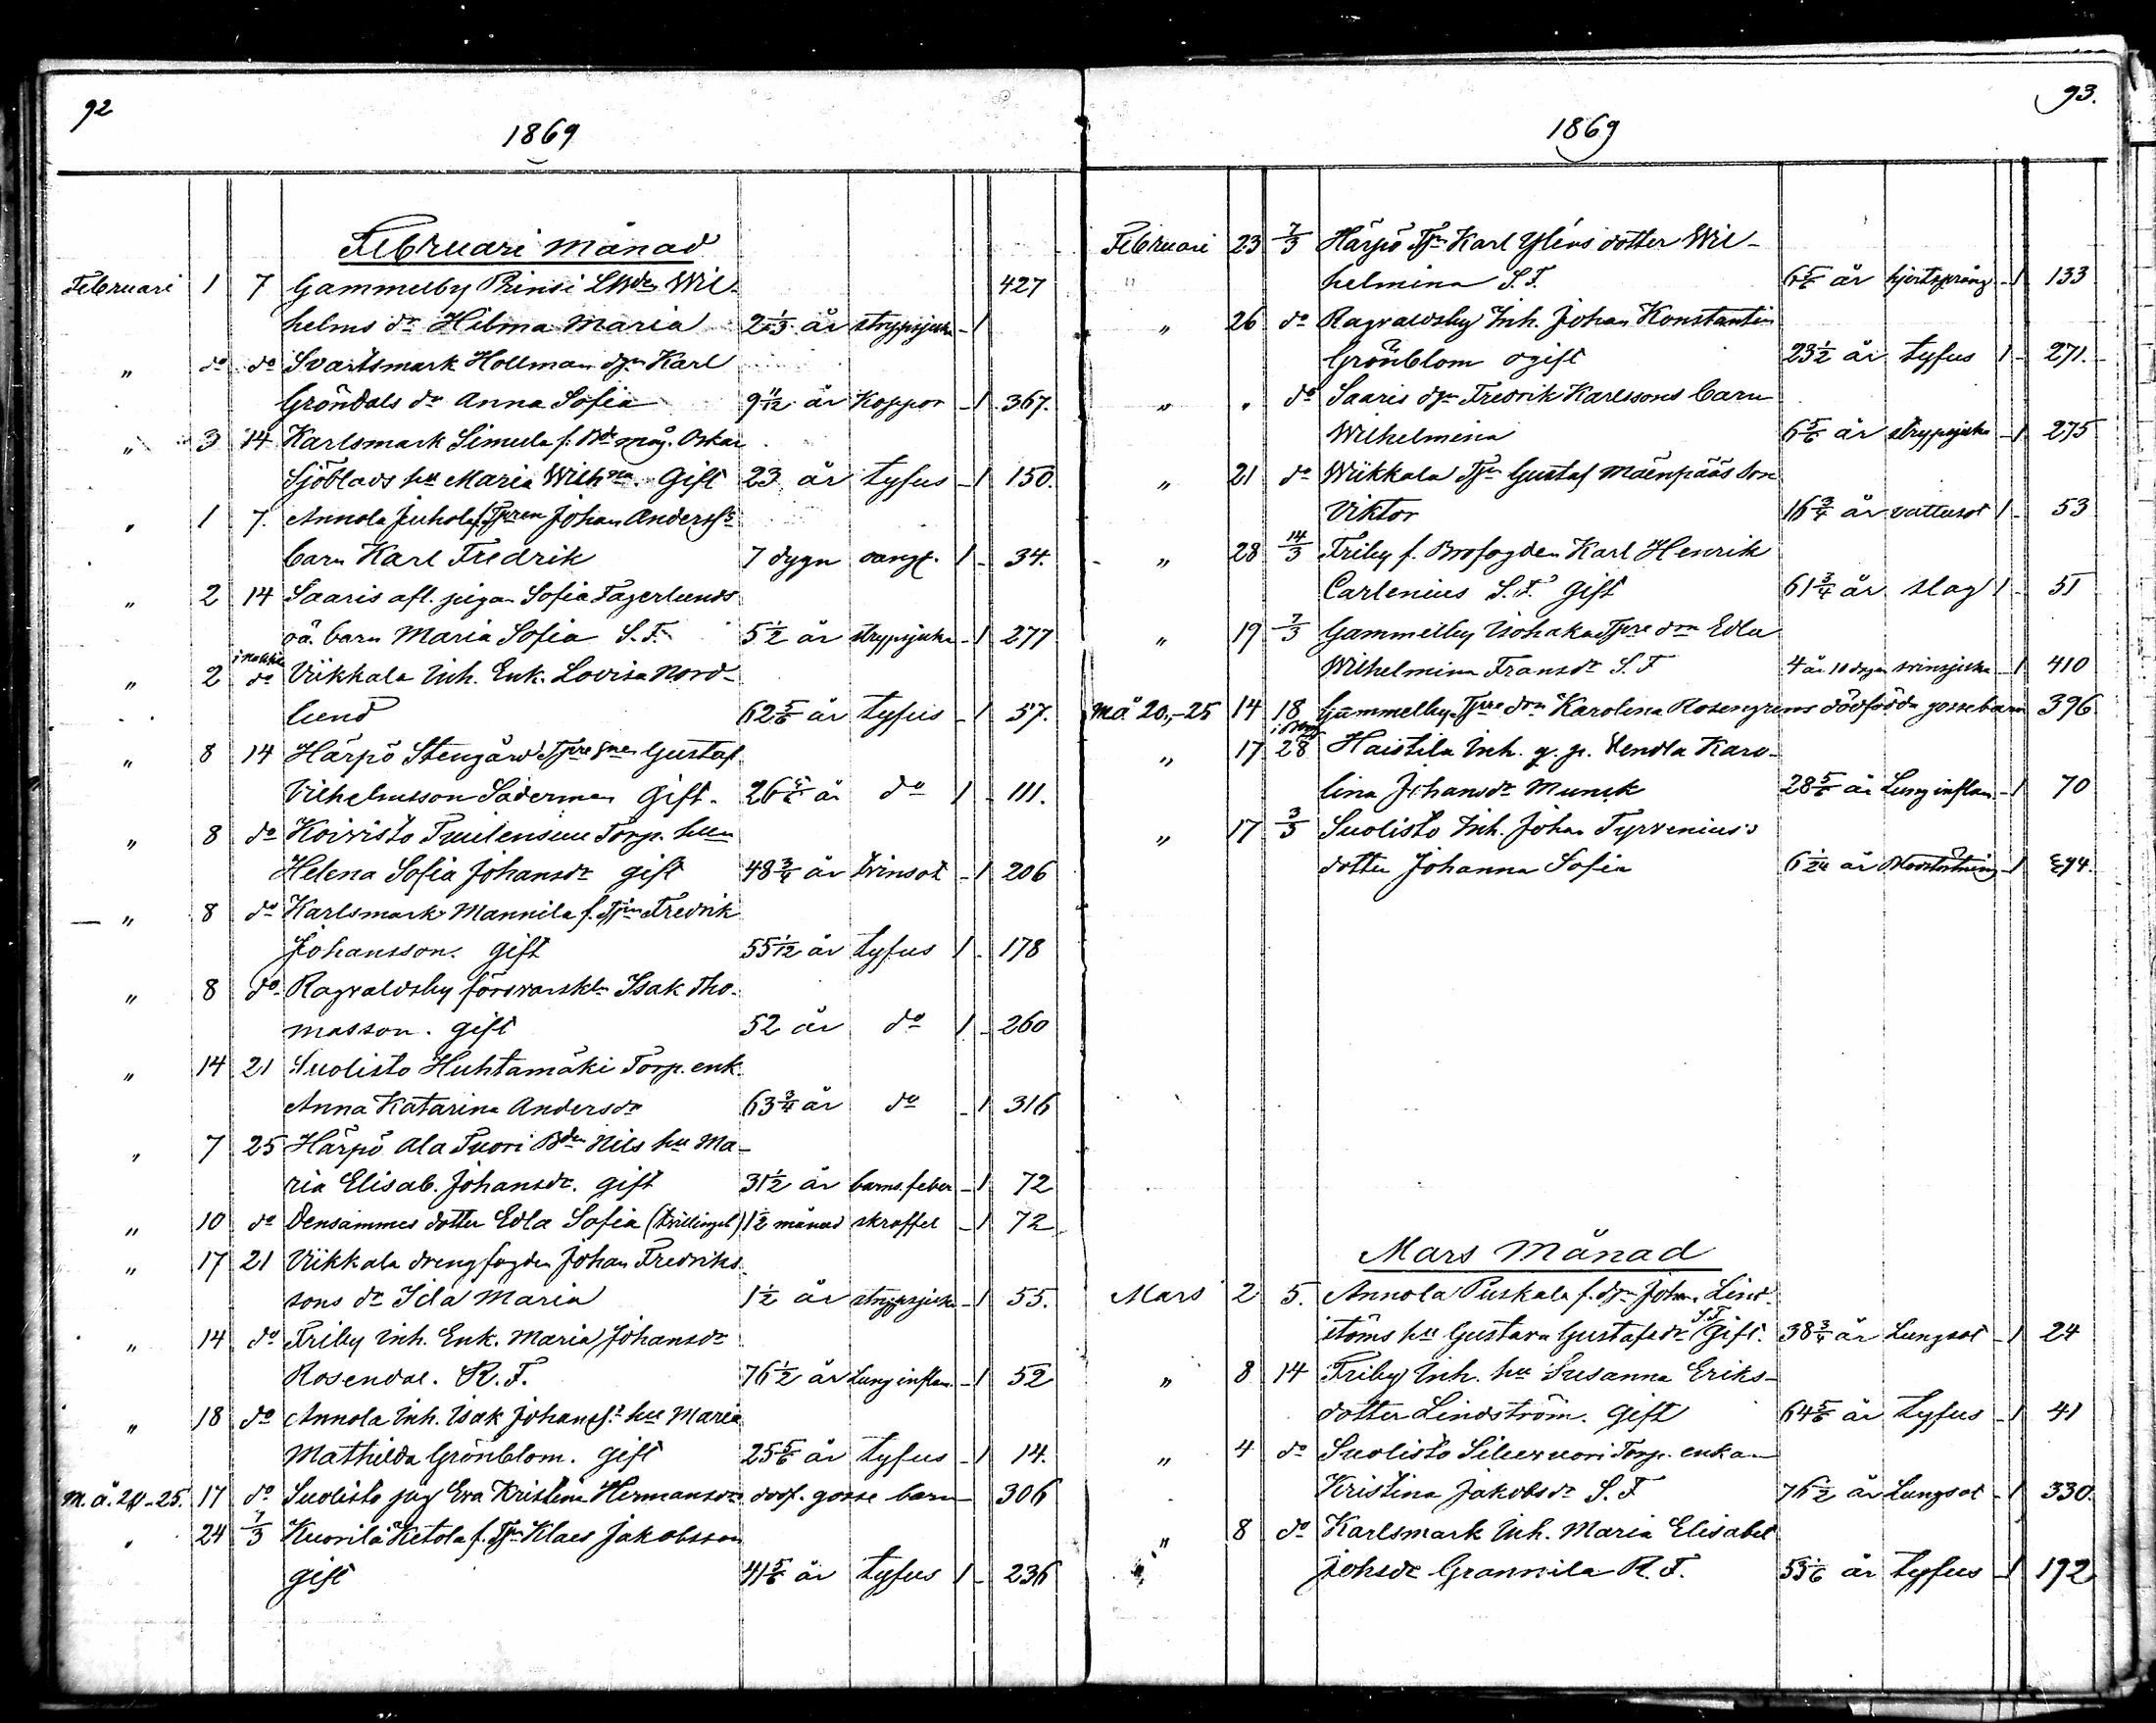 92
1869
Februari månad
Februari 1 7 Gammelby Prinsi Wil- 427
helms dr Hilma Maria 2 1/3 år strypsjuka - 1
" do do Svartsmark Hollman Karl
Gröndals dr Anna Sofia 9 11/12 år koppor - 1 367.
" 3 14 Karlsmark Simula f. Bde måg. Oskar
Sjöblads hu Maria Wilhna. Gift 23 år tyfus - 1 150.
" 1 7. Annola Juhola Johan Anderss
barn Karl Fredrik 7 dygn 1 - 34.
" 2 14 Saaris afl. pigan Sofia Fagerlunds
oä. barn Maria Sofia S. F. 5 1/2 år strypsjuka - 1 277
" 2 do Viikkala Inh. Enk. Lovisa Nord-
lund 62 5/6 år tyfus - 1 57.
" 8 14 Härpö Stengård Gustaf
Vilhelmsson Söderman Gift. 26 år do 1 - 111.
" 8 do Koivisto Torp. hun
Helena Sofia Johansdr gift 48 3/4 år tvinsot - 1 206
" 8 do Karlsmark Mannila f. Fredrik
Johansson. gift 55 1/12 år tyfus 1 - 178
" 8 do Ragvaldsby försvarskln Isak Tho-
masson. gift 52 år do 1 - 260
" 14 21 Suolisto Huhtamäki Torp. enk.
Anna Katarina Andersdr 63 3/4 år do - 1 316
" 7 25 Härpö Ala Tuori Bden Nils hu Ma-
ria Elisab. Johansdr. gift 31 1/2 år barns. feber - 1 72
" 10 do Densammes dotter Edla Sofia (tvillingel) 1 1/2 månad skroffel - 1 72
" 17 21 Viikkala drengfogden Johan Fredriks-
sons dr Ida Maria 1 1/2 år strypsjuka - 1 55.
" 14 do Friby Inh. Enk. Maria Johansdr
Rosendal. R. F. 76 1/2 år Lunginflam. - 1 52
" 18 do Annola Inh. Isak Johanss hu Maria
Mathilda Grönblom. gift 25 5/6 år tyfus - 1 14.
m. å. 20-25. 17 do Suolisto pig Eva Kristina Hermansdr dödf. gosse barn 306
" 24 7/3 Kuorila Ketola f. Klaes Jakobsson
gift 41 5/6 år tyfus 1 - 236
93.
1869
Februari 23 7/3 Härpö Karl Yléns dotter Wil-
helmina S. F. 6 5/6 år hjertsprång - 1 133
" 26 do Ragvaldsby Inh. Johan Konstantin
Grönblom ogift 23 1/2 år tyfus 1 - 271.
" " do Saaris Fredrik Karlssons barn
Wilhelmina 6 5/6 år strypsjuka - 1 275
" 21 do Wiikkala Gustaf Mäenpääs son
Viktor 16 3/4 år vattusot 1 - 53
" 28 14/3 Friby f. Brofogden Karl Henrik
Carlenius S. F. Gift 61 3/4 år slag 1 - 51
" 19 7/3 Gammelby Isohaka Edla
Wilhelmina Fransdr S. F 4 år 10 dagar - 1 410
m å 20,-25 14 18 Gammelby Karolina Rosengrens dödfödda gossebarn 396
" 17 28 Haistila Inh. Hendla Karo-
lina Johansdr Munck 28 5/6 år Lunginflam. - 1 70
" 17 3/3 Suolisto Inh. Johan Tyrvenius's
dotter Johanna Sofia 6 1/24 år - 1
Mars Månad
Mars 2 5. Annola Puskala f. Johan Lind-
ströms hu Gustava Gustafsdr S.F Gift. 38 3/4 år Lungsot - 1 24
" 8 14 Friby Inh. hu Susanna Eriks-
dotter Lindström. Gift 64 5/6 år tyfus - 1 41
" 4 do Suolisto Torp. enkan
Kristina Jakobsdr S. F 76 1/2 år Lungsot - 1 330.
" 8 do Karlsmark Inh. Maria Elisabet
Johsdr Grannila R. F. 53 1/6 år tyfus - 1 192